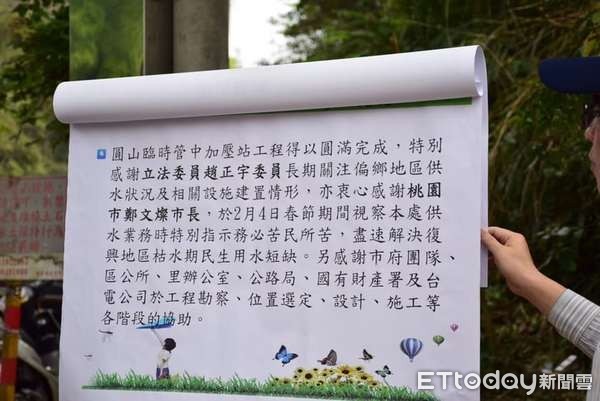 圓山臨時管中加壓站工程得以圓滿完成，特別
感謝立法委員趙正宇委員長期關注偏鄉地區供
水狀況及相關設施建置情形，亦衷心感謝桃園
市鄭文燦市長，於2月4日春節期間視察本處供
水業務時特別指示務必苦民所苦，盡速解決復
興地區枯水期民生用水短缺。另感謝市府團隊、
區公所、里辦公室、公路局、國有財產署及台
電公司於工程勘察、位置選定、設計、施工等
各階段的協助。
ETtoday新聞雲